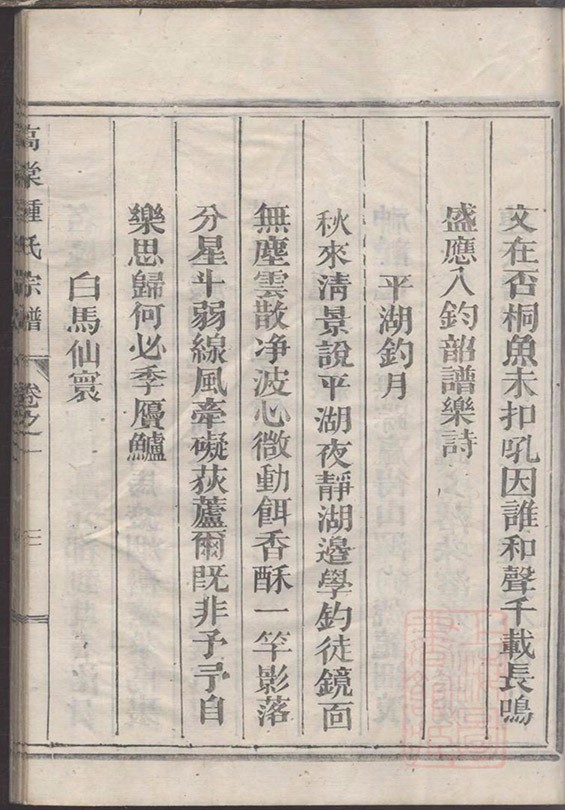 文在否桐魚未扣吼因誰和聲千載長鳴
盛應入鈞韶譜樂詩
平湖釣月
秋來清景說平湖夜靜湖邊學釣徒鏡面
無塵雲散净波心微動餌香酥一竿影落
分星斗弱線風牽礙荻蘆爾既非予予自
樂思歸何必季鷹鱸
白馬仙寰
高棠鍾氏宗譜
卷之一
三